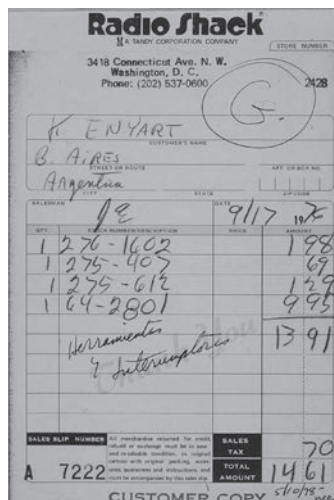 Radio Shack
A TANDY CORPORATION COMPANY
STORE NUMBER
3418 Connecticut Ave. N. W.
Washington, D. C.
Phone: (202) 537-0600
2428
G.
K. ENYART
CUSTOMER'S NAME
B. AiRES
STREET OR ROUTE
APT. OR BOX NO.
Argentina
CITY STATE ZIP CODE
SALESMAN DATE
JE 9/17 19
QTY. STOCK NUMBER/DESCRIPTION PRICE AMOUNT
1 276-1602 198
1 275-407 69
1 275-612 129
1 64-2801 995
1391
Herramientas
y Interruptores
Thank You
SALES SLIP NUMBER
A 7222
All merchandise returned for credit,
refund or exchange must be in new
and re-saleable condition, in original
cartons with original packing, acces-
sories, guarantees and instructions, and
must be accompanied by this sales slip.
SALES TAX 70
TOTAL AMOUNT 1461
CUSTOMER COPY
5/10/78